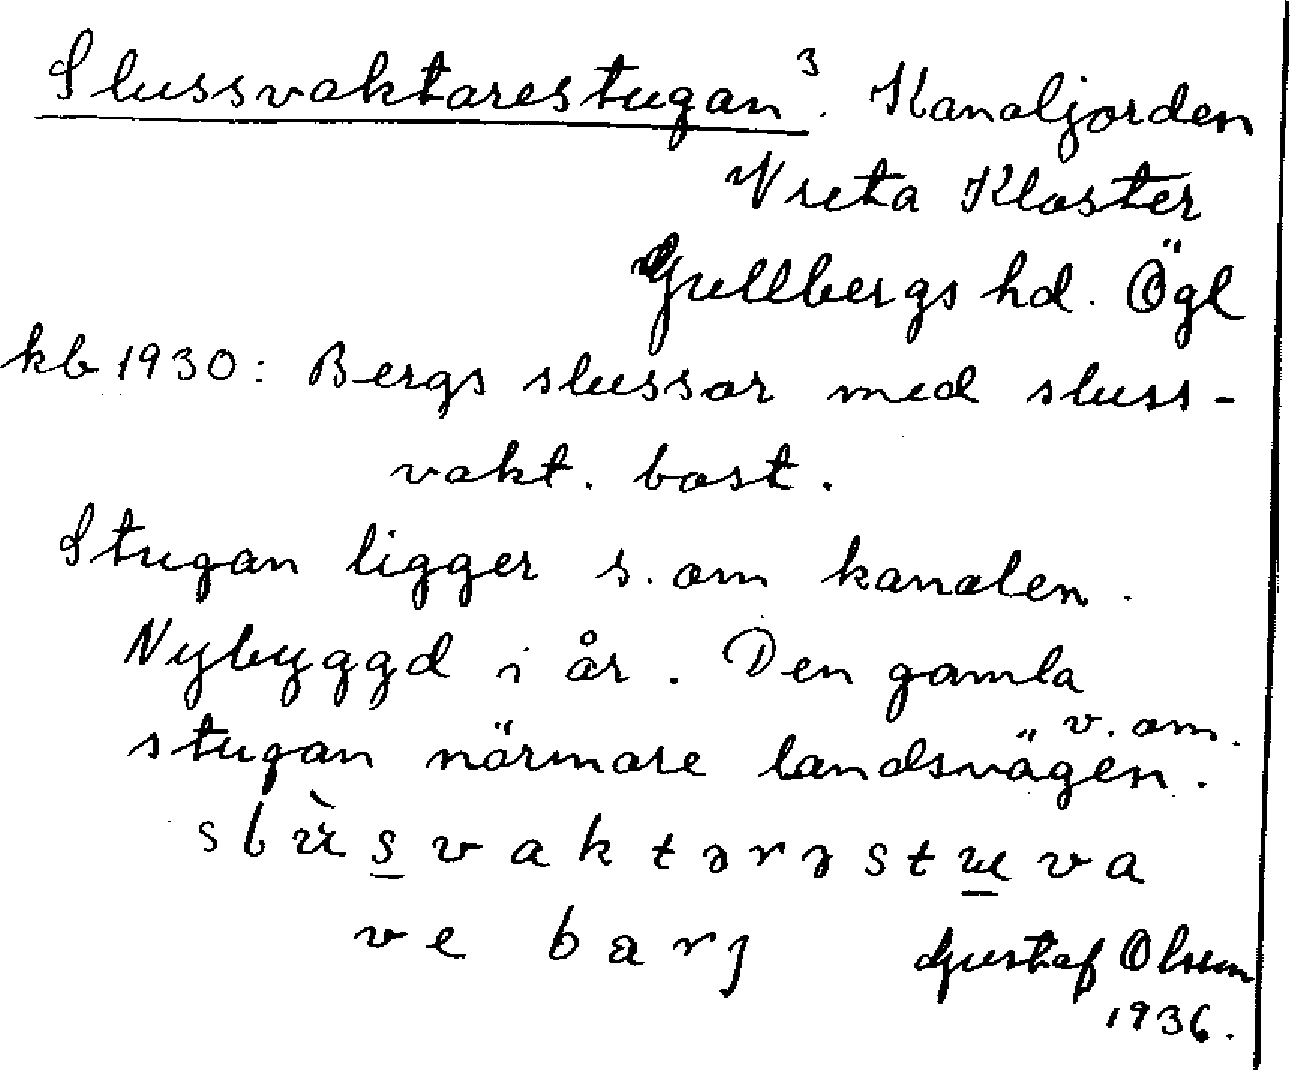 Slussvaktarestugan³. Kanaljorden
Vreta Kloster
Gullbergs hd. Ögl
kb 1930: Bergs slussar med sluss-
vakt. bost.
Stugan ligger s. om kanalen.
Nybyggd i år. Den gamla
v. om.
stugan närmare landsvägen.
ve barj
Gustaf Olsson
1936.